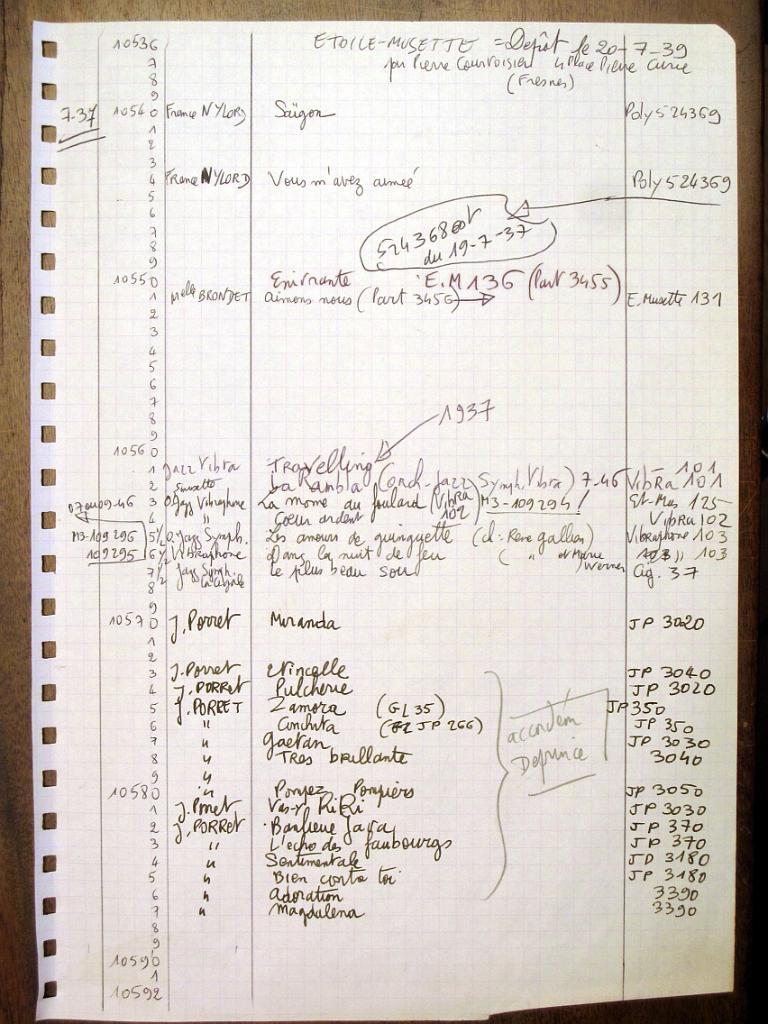 10536 ETOILE-MUSETTE = Depôt le 20-7-39
7 par Pierre Courvoisier 4 Place Pierre Curie
8 (Fresnes)
9
7-37 10540 France NYLORD Saïgon Poly 524369
1
2
3
4 France NYLORD Vous m'avez aimée Poly 524369
5
6
7 524368 est
8 du 19-7-37
9
10550 Enivrante E.M 136 (Part 3455)
1 Melle BRONDET aimons nous (Part 3456) E. Musette 131
2
3
4
5
6
7
8 1937
9
10560
1 Jazz Vibra Travelling VibRa 101
2 Musette La Rambla (Orch-Jazz Symph. Vibra) 7-46 101
07 au 09-46 3 O. Jazz Vibraphone La mome au foulard (VibRa 102) M3-109294 / Et-Mus 125
4 " Coeur ardent VibRa 102
M3-109296 5 1/2 O. Jazz Symph. Les amours de guinguette (cl: René Gallion) Vibraphone 103
109295 6 1/2 Vibraphone Dans la nuit de feu ( " et Marie Werner) " 103
7 1/2 Jazz Symph. Le plus beau soir Cig. 37
8 La Cigale
9
10570 J. Porret Miranda JP 3020
1
2
3 J. Porret Etincelle JP 3040
4 J. PORRET Pulcherie JP 3020
5 J. PORRET Zamora (GL 35) JP 350
6 " Conchita (JP 266) JP 350
7 " Gaetan JP 3030
8 " Tres brillante 3040
accordéon
Deprince
9 "
10580 " Pompez Pompiers JP 3050
1 J. Porret Vas-y RiRi JP 3030
2 J. PORRET Banlieue Java JP 370
3 " L'echo des faubourgs JP 370
4 " Sentimentale JP 3180
5 " Bien contre toi JP 3180
6 " Adoration 3390
7 " Magdalena 3390
8
9
10590
1
10592